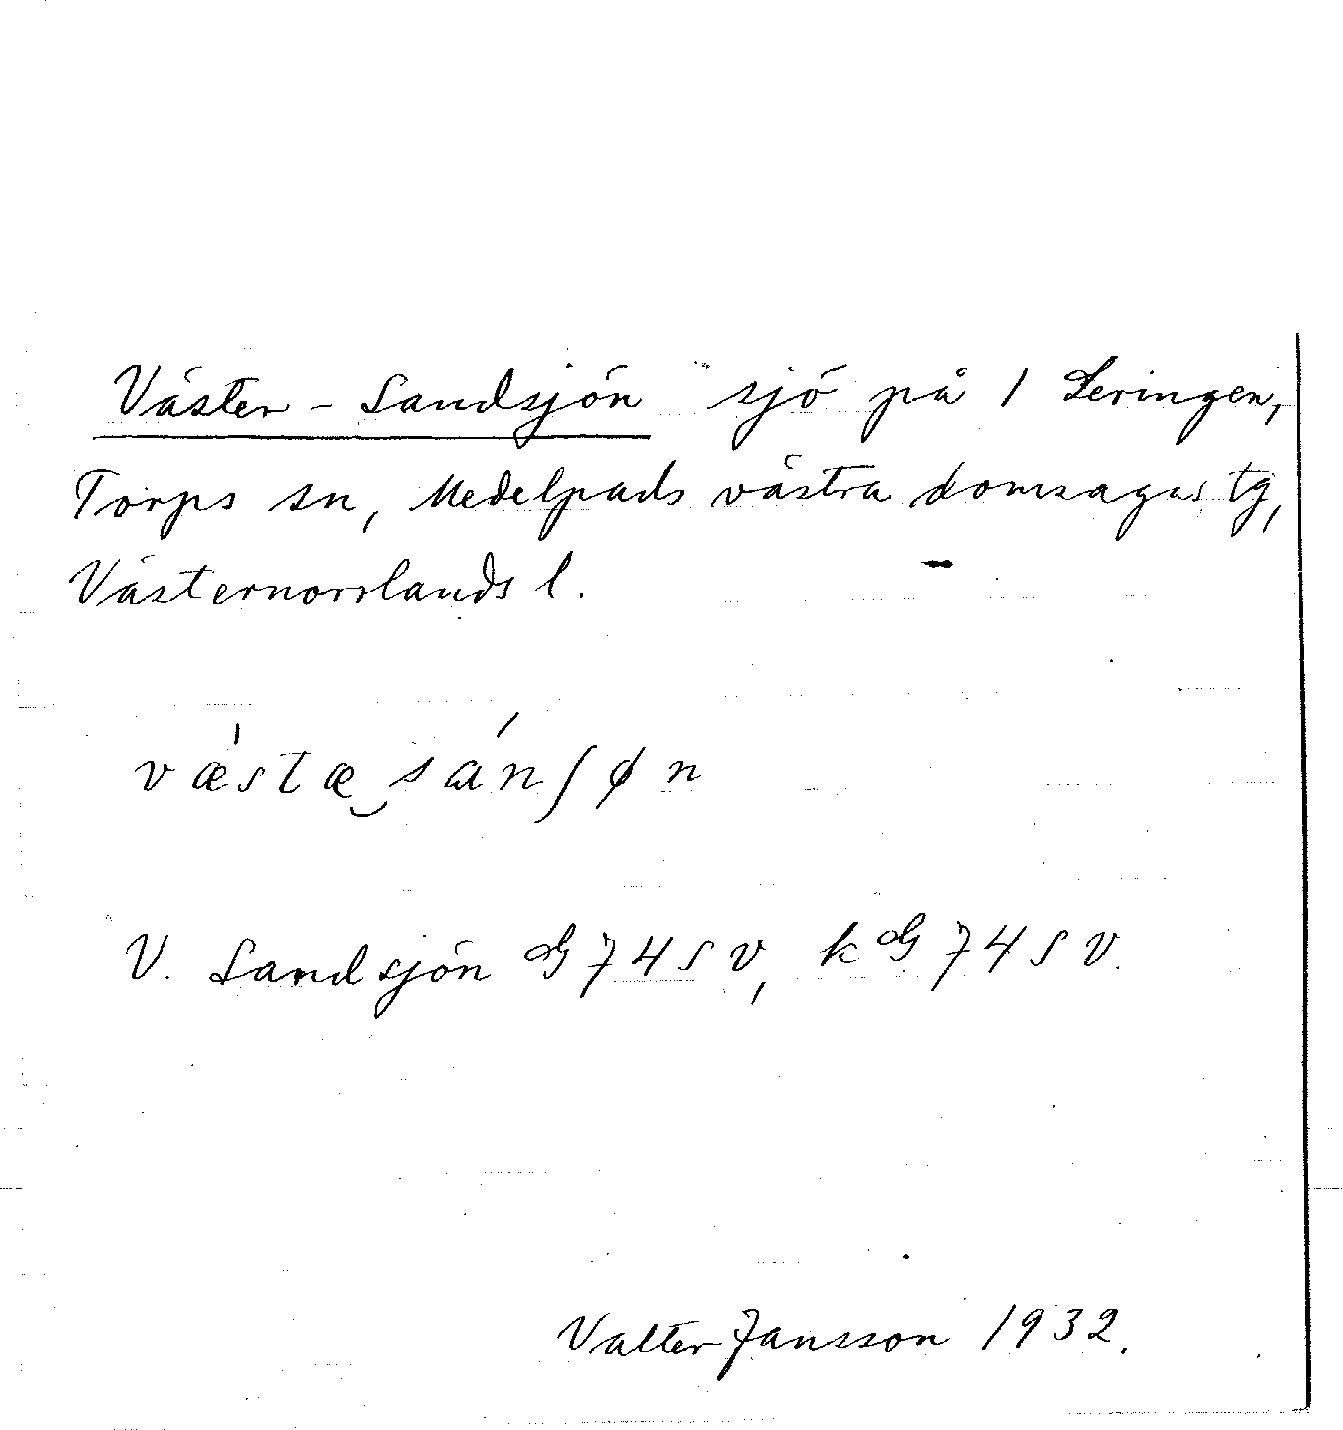 Väster-Sandsjön sjö på 1 Leringen,
Torps sn, Medelpads västra domsagas tg,
Västernorrlands l.
væ̍stæ‿sánʃøn
V. Sandsjön G 74 SV, kG 74 SV.
Valter Jansson 1932.